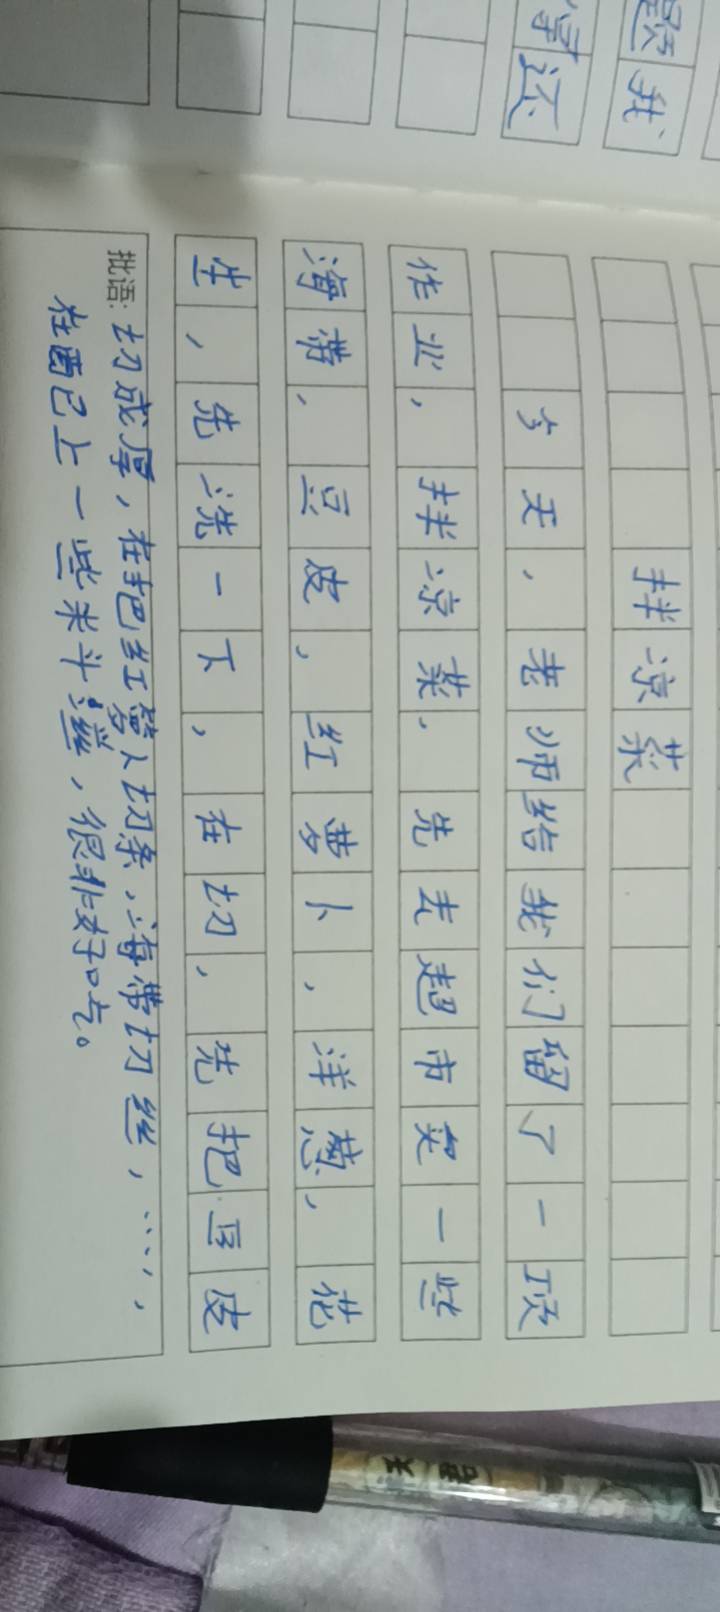 题我
拌凉菜
今天,老师给我们留了一项
作业,拌凉菜,先去超市买一些
海带,豆皮,红萝卜,洋葱,花
生,先洗一下,在切,先把豆皮
批语:切成厚,在把红萝卜切条,海带切丝,……,
在面已上一些米斗,很非好吃。
天 君